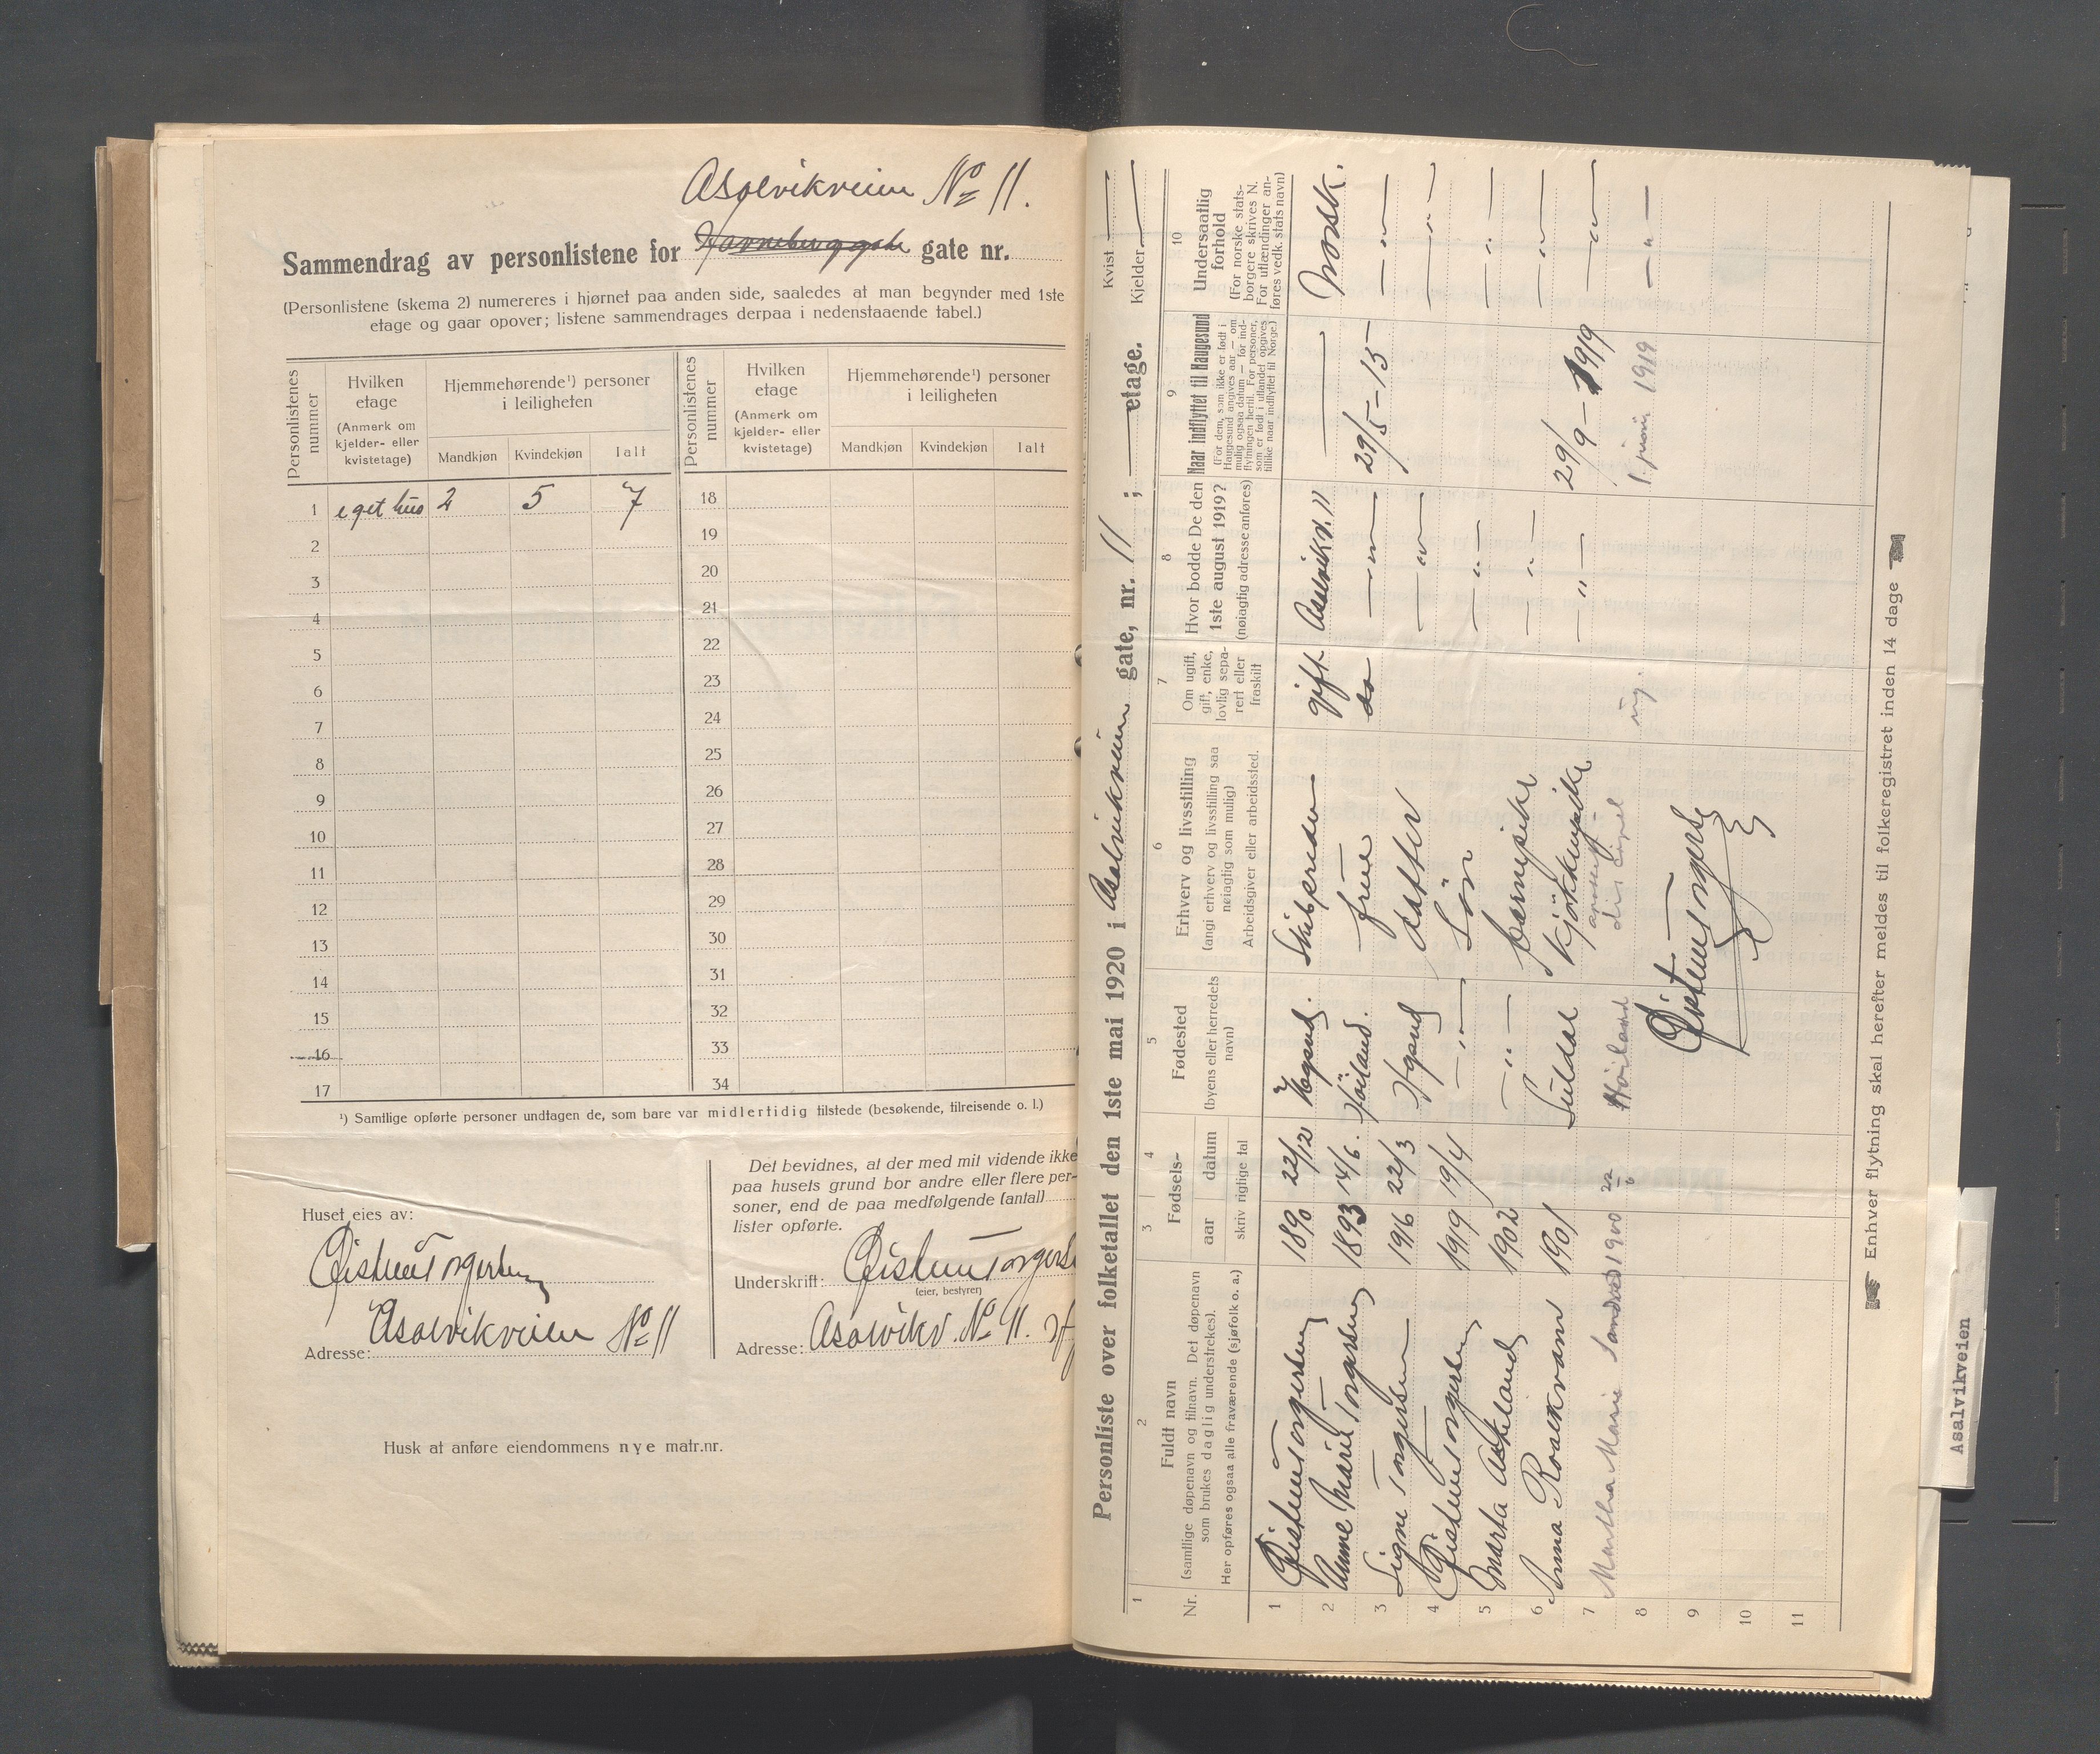 Asalvikveien No 11.
Sammendrag av personlistene for Haraneberggate gate nr.
(Personlistene (skema 2) numereres i hjørnet paa anden side, saaledes at man begynder med 1ste
etage og gaar opover; listene sammendrages derpaa i nedenstaaende tabel.)
Personlistenes nummer
Hvilken etage
(Anmerk om kjelder- eller kvistetage)
Hjemmehørende¹) personer i leiligheten
Mandkjøn Kvindekjøn Ialt
Personlistenes nummer
Hvilken etage
(Anmerk om kjelder- eller kvistetage)
Hjemmehørende¹) personer i leiligheten
Mandkjøn Kvindekjøn Ialt
1 eget hus 2 5 7 18
2 19
3 20
4 21
5 22
6 23
7 24
8 25
9 26
10 27
11 28
12 29
13 30
14 31
15 32
16 33
17 34
¹) Samtlige opførte personer undtagen de, som bare var midlertidig tilstede (besøkende, tilreisende o. l.)
Huset eies av:
Øistein Torgersen
Adresse: Asalvikveien No 11
Det bevidnes, at der med mit vidende ikke
paa husets grund bor andre eller flere per-
soner, end de paa medfølgende (antal)
lister opførte.
Underskrift: Øistein Torgers
(eier, bestyrer)
Adresse: Asalvikv. No 11.
Husk at anføre eiendommens nye matr.nr.
Personliste over folketallet den 1ste mai 1920 i Asalvikveien gate, nr. 11 ; — etage.
Kvist —
Kjelder —
1 2 3 4 5 6 7 8 9 10
Nr.
Fuldt navn
(samtlige døpenavn og tilnavn. Det døpenavn
som brukes daglig understrekes).
Her opføres ogsaa alle fraværende (sjøfolk o. a.)
Fødsels-
aar datum
skriv riglige tal
Fødested
(byens eller herredets
navn)
Erhverv og livsstilling
(angi erhverv og livsstilling saa
nøiagtig som mulig)
Arbeidsgiver eller arbeidssted.
Om ugift,
gift, enke,
lovlig sepa-
rert eller
fraskilt
Hvor bodde De den
1ste august 1919?
(nøiagtig adresse anføres)
Naar indflyttet til Haugesund
(For dem, som ikke er født i
Haugesund angives aar — om
mulig ogsaa datum — for ind-
flytningen hertil. For personer,
som er født i utlandet opgives
tillike naar indflyttet til Norge.)
Undersaatlig
forhold
(For norske stats-
borgere skrives N.
For utlændinger an-
føres vedk. stats navn)
1 Øistein Torgersen 1890 22/12 Hgsund. Skibsreder gift Asalvikv. 11 — Norsk.
2 Anne Marie Torgersen 1893 14/6. Höiland. frue do — " — 29/5-15 — " —
3 Signe Torgersen 1916 22/3 Hgsund datter — " — — " —
4 Øistein Torgersen 1919 19/4 — " — Sön — " — — " —
5 Marta Askeland 1902 — " — barnepike — " — — " —
6 Anna Roalkvam 1901 Suldal kjökkenpike — " — 29/9-1919 — " —
7 Martha Marie Sandved 1900 22/6 Höiland ug. 1 juni 1919 — " —
8
9
10
11
Øistein Torgersen
Enhver flytning skal herefter meldes til folkeregistret inden 14 dage
Asalvikveien